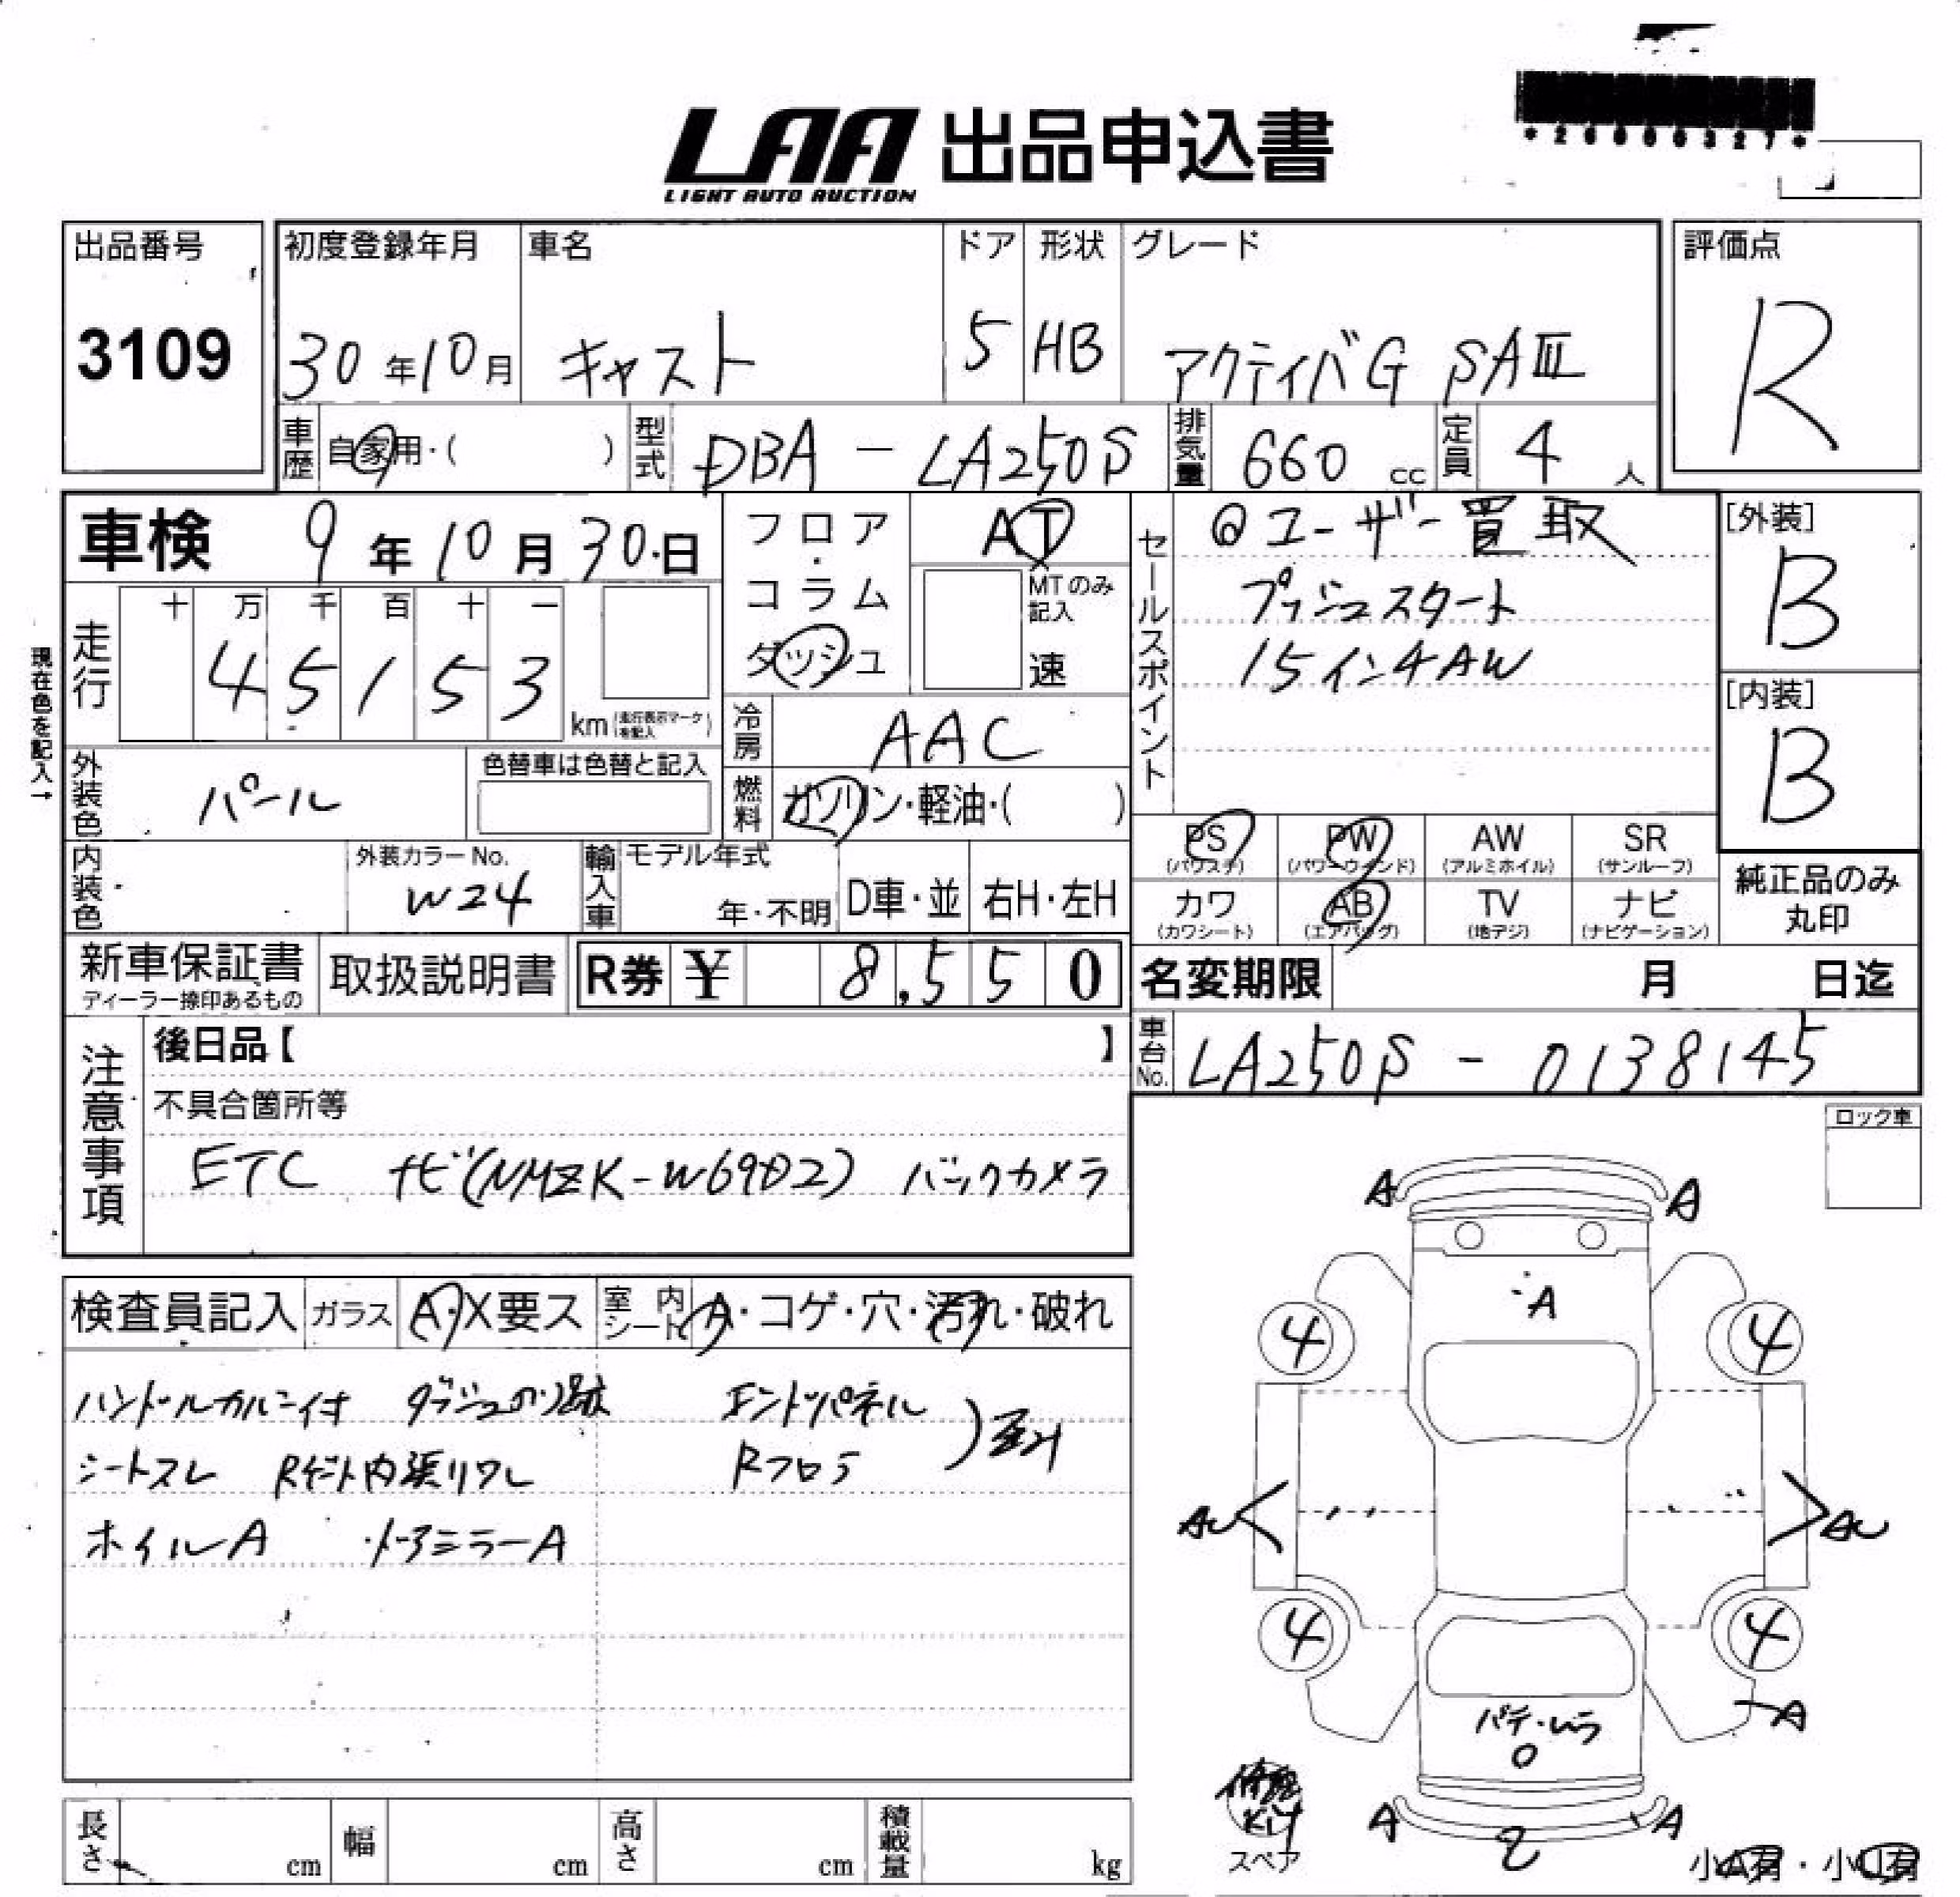 LAA 出品申込書
LIGHT AUTO AUCTION
出品番号
3109
初度登録年月
30年10月
車名
キャスト
ドア
5
形状
HB
グレード
アクティバG SAⅢ
評価点
R
車歴 自家用・( )
型式 DBA-LA250S
排気量 660 cc
定員 4 人
車検 9年10月30日
フロア・コラム ダッシュ
AT
MTのみ記入
速
セールスポイント
@ユーザー買取
プッシュスタート
15インチAW
[外装]
B
[内装]
B
現在色を記入→
走行
十 万 千 百 十 一
4 5 1 5 3
km (走行表示マークを記入)
冷房 AAC
燃料 ガソリン・軽油・( )
外装色 パール
色替車は色替と記入
内装色
外装カラーNo.
W24
輸入車
モデル年式
年・不明
D車・並
右H・左H
PS (パワステ)
PW (パワーウインド)
AW (アルミホイル)
SR (サンルーフ)
カワ (カワシート)
AB (エアバッグ)
TV (地デジ)
ナビ (ナビゲーション)
純正品のみ丸印
新車保証書
ディーラー捺印あるもの
取扱説明書
R券 ¥ 8,550
名変期限 月 日迄
車台No. LA250S-0138145
注意事項
後日品【 】
不具合箇所等
ETC ナビ(NMZK-W69D2) バックカメラ
ロック車
検査員記入
ガラス A・X要ス
室内シート A・コゲ・穴・汚れ・破れ
ダッシュのり跡 エンドパネル
シートスレ 内張りワレ Rフロア
ホイルA ドアミラーA
A A
A
4 4
AU AU
4 4
A
パテ・ムラ
O
A A
修理
Kit
スペア
小A有・小U有
長さ cm
幅 cm
高さ cm
積載量 kg